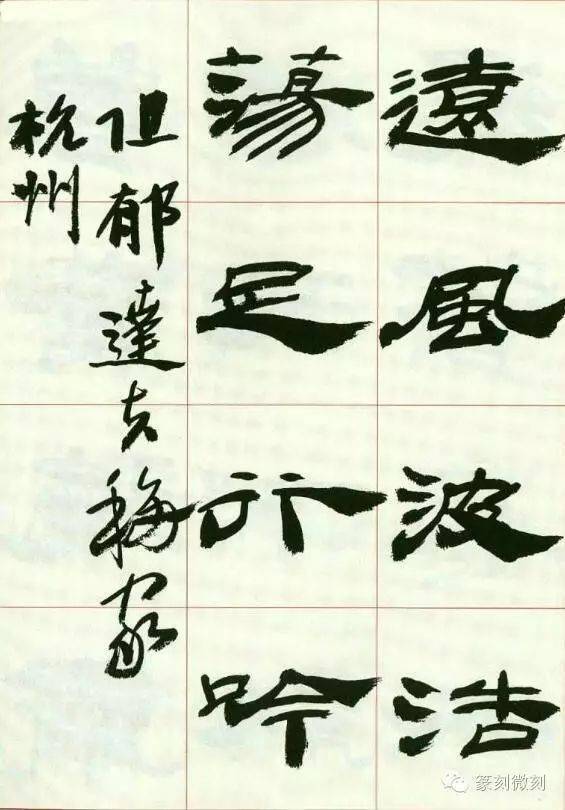 遠風波浩
蕩足行吟
阻郁達夫移家
杭州
篆刻微刻